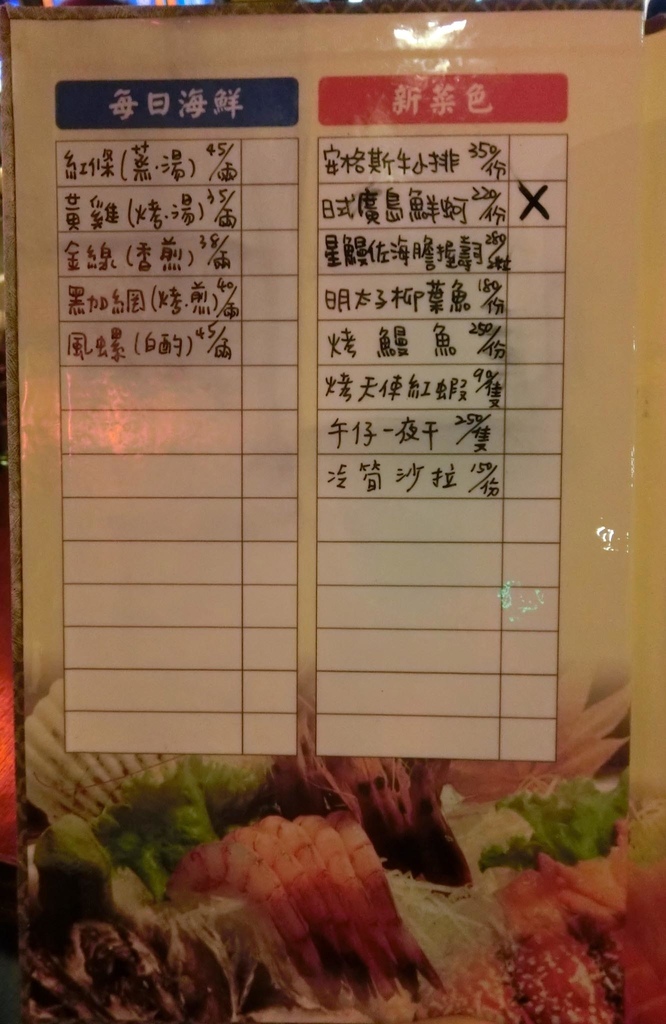 每日海鮮
紅條(蒸.湯) 45/兩
黃雞(烤.湯) 35/兩
金線(香煎) 38/兩
黑加網(烤.煎) 40/兩
風螺(白酌) 45/兩
新菜色
安格斯牛小排 350/份
日式廣島鮮蚵 220/份 X
星鰻佐海膽握壽司 280/
明太子柳葉魚 180/份
烤鰻魚 250/份
烤天使紅蝦 90/隻
午仔一夜干 250/隻
冷筍沙拉 150/份